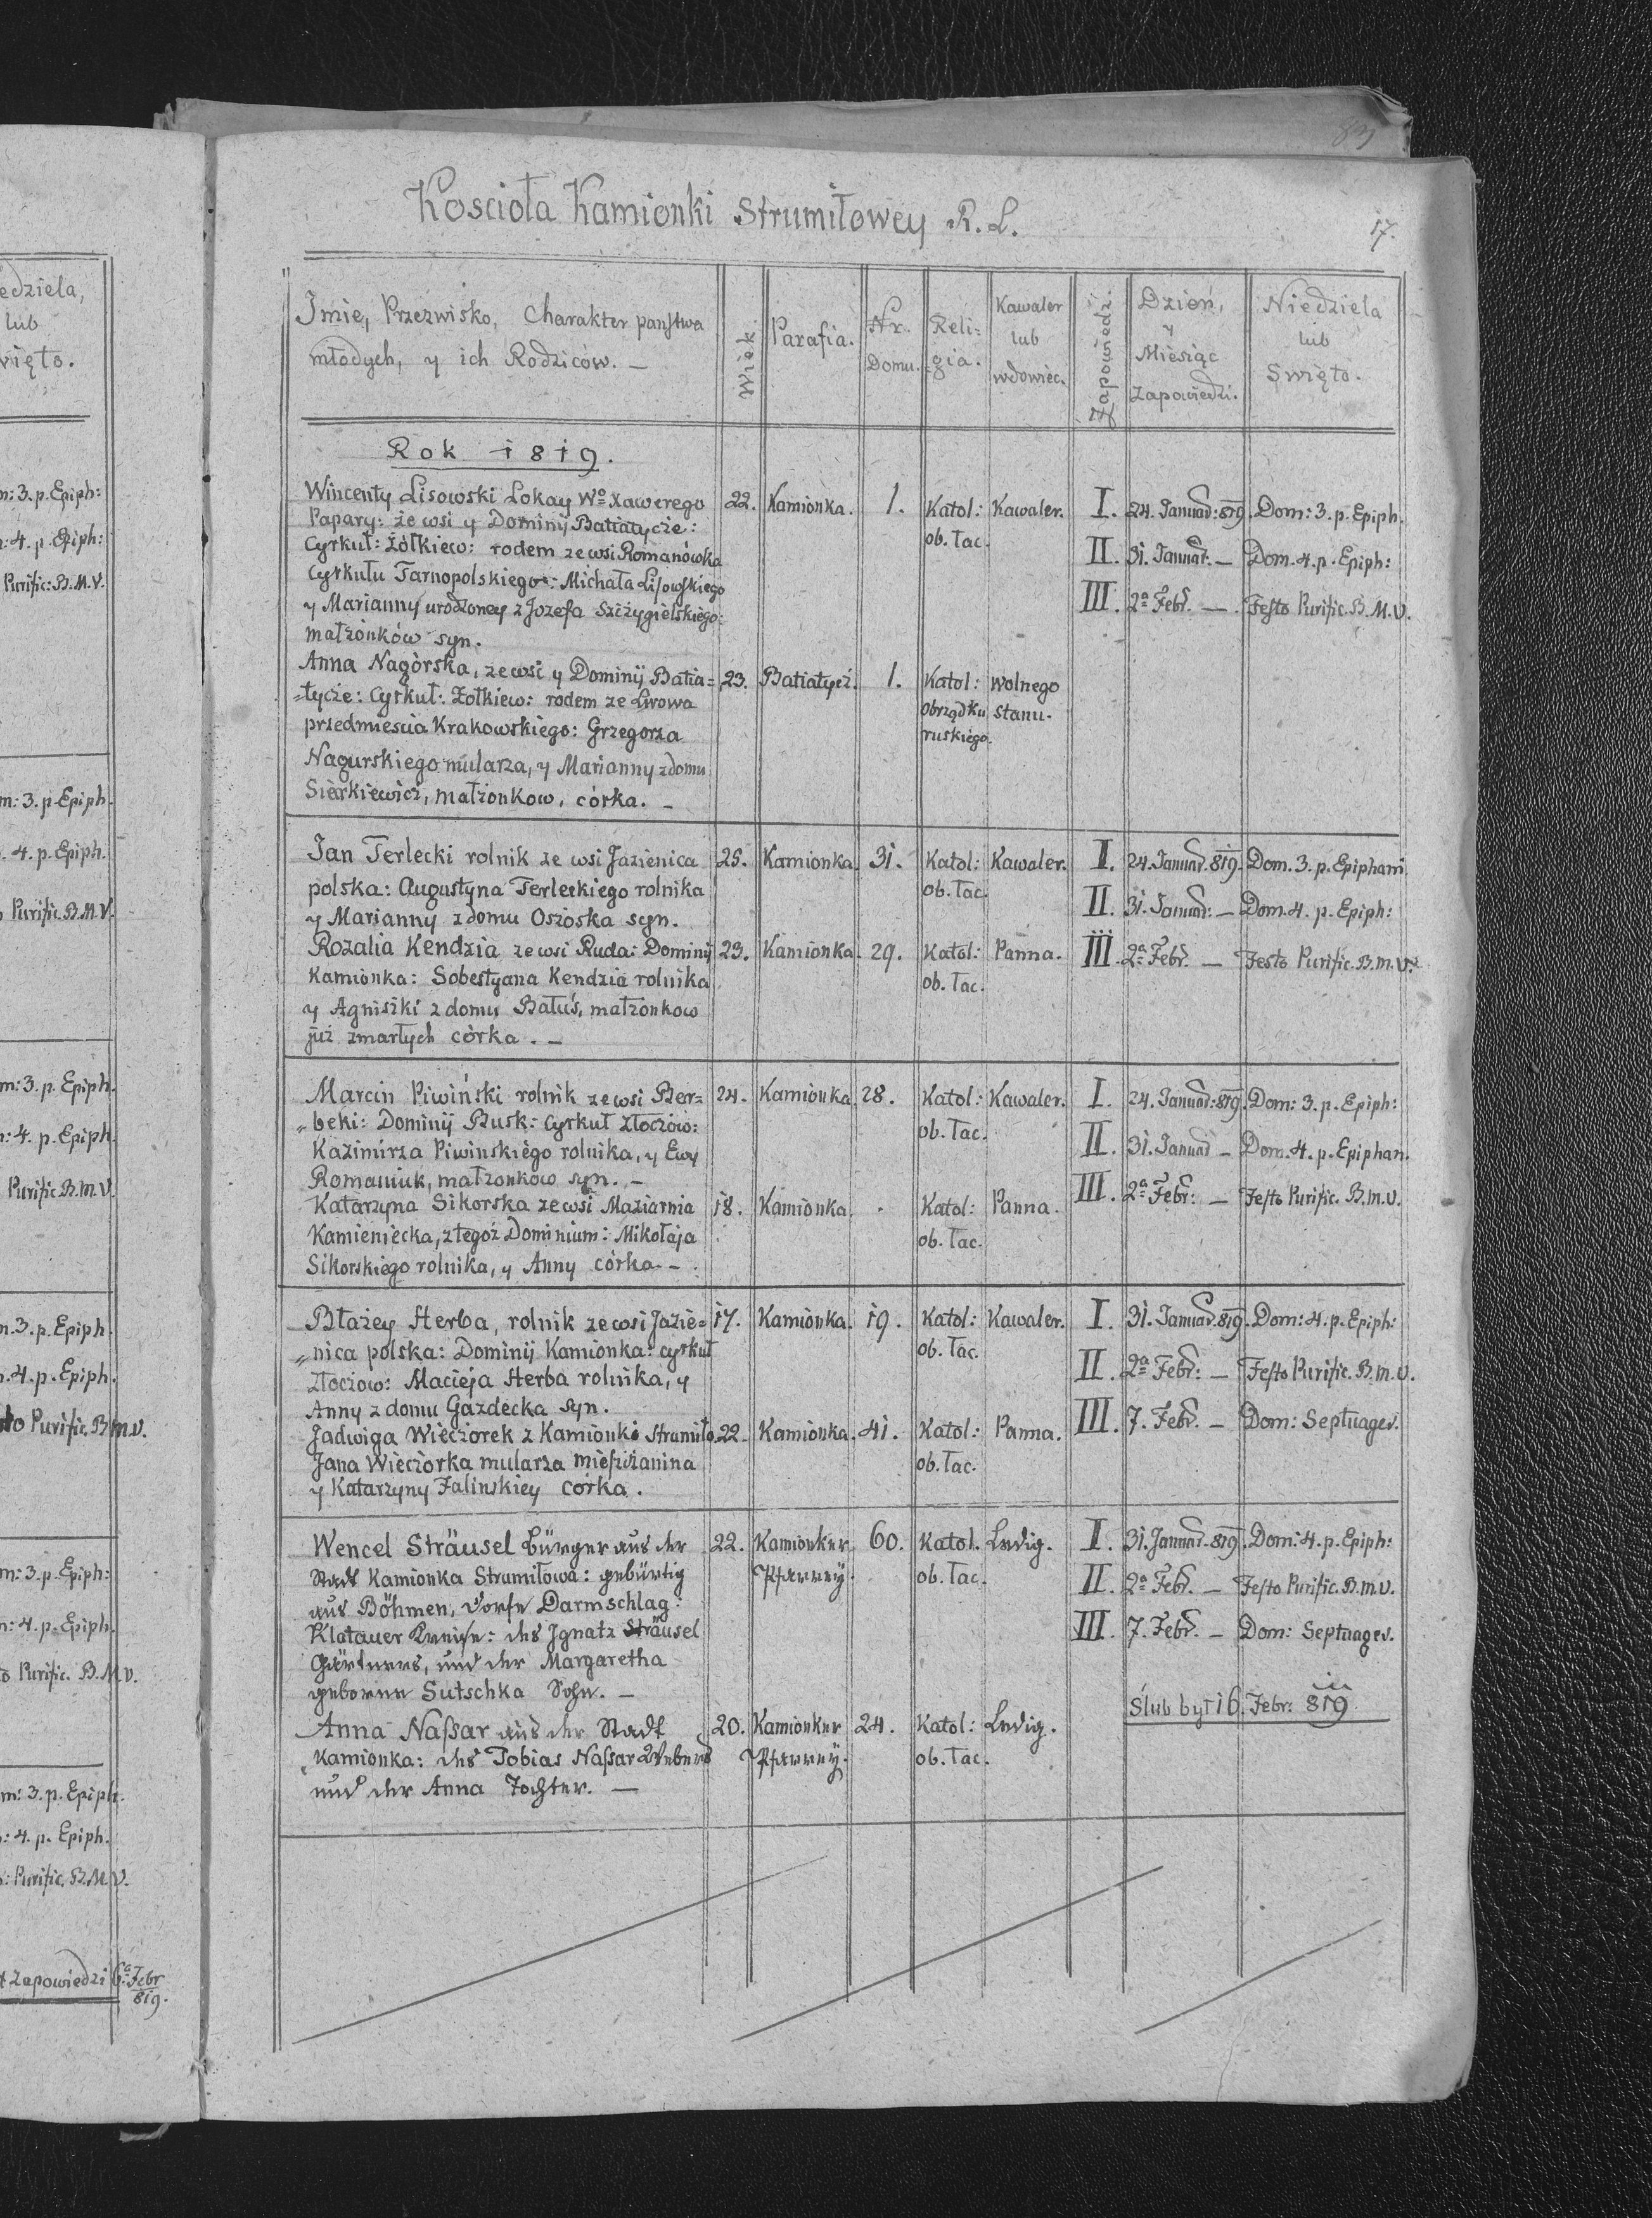 83
Koscioła Kamionki Strumiłowey R. L.
17.
Imie, Przezwisko, Charakter państwa
młodych, y ich Rodziców. —
Wiek.
Parafia.
Nr.
Domu.
Reli=
=gia.
Kawaler
lub
wdowiec.
Zapowiedz:
Dzień,
y
Miesiąc
Zapowiedzi.
Niedziela
lub
Swięto.
Rok 1819.
Wincenty Lisowski Lokay Wo Xawerego
Papary: ze wsi y Dominij Batiatycze:
Cyrkuł: Żółkiew: rodem ze wsi Romanówka
Cyrkułu Tarnopolskiego: Michała Lisowskiego
y Marianny urodzoney z Jozefa Szczygielskiego:
małżonków syn.
22. Kamionka. 1. Katol: Kawaler.
ob. łac.
I. 24. Januar: 819. Dom: 3. p. Epiph.
II. 31. Januar. — Dom. 4. p. Epiph:
III. 2a Febr. — Festo Purific. B. M. V.
Anna Nagòrska, ze wsi y Dominij Batia=
=tycze: Cyrkuł: Żołkiew: rodem ze Lwowa
przedmiescia Krakowskiego: Grzegorza
Nagurskiego mularza, y Marianny z domu
Sierkiewicz, małżonkow, córka. —
23. Batiatycz. 1. Katol: wolnego
obrządku stanu.
ruskiego.
Jan Terlecki rolnik ze wsi Jazienica
polska: Augustyna Terleckiego rolnika
y Marianny z domu Oszoska syn.
25. Kamionka. 31. Katol: Kawaler.
ob. łac.
I. 24. Januar. 819. Dom. 3. p. Epiphani
II. 31. Januar: — Dom. 4. p. Epiph:
III. 2a Febr. — Festo Purific. B. M. V.
Rozalia Kendzia ze wsi Ruda: Dominij
Kamionka: Sobestyana Kendzia rolnika
y Agniszki z domu Batuś, małżonkow
już zmarłych córka. —
23. Kamionka. 29. Katol: Panna.
ob. łac.
Marcin Piwiński rolnik ze wsi Ber=
„beki: Dominij Busk: Cyrkuł Złoczow:
Kazimirza Piwinskiego rolnika, y Ewy
Romaniuk, małżonkow syn. —
24. Kamionka. 28. Katol: Kawaler.
ob. łac.
I. 24. Januar: 819. Dom: 3. p. Epiph:
II. 31. Januar — Dom. 4. p. Epiphan.
III. 2a Febr: — Festo Purific. B. M. V.
Katarzyna Sikorska ze wsi Maziarnia
Kamieniecka, z tegoż Dominium: Mikołaja
Sikorskiego rolnika, y Anny córka. —
18. Kamionka. . Katol: Panna.
ob. łac.
Błażey Herba, rolnik ze wsi Jazie=
„nica polska: Dominij Kamionka: cyrkuł
Złoczow: Macieja Herba rolnika, y
Anny z domu Gazdecka syn.
17. Kamionka. 19. Katol: Kawaler.
ob. łac.
I. 31. Januar. 819. Dom: 4. p. Epiph:
II. 2a Febr: — Festo Purific. B. M. V.
III. 7. Febr. — Dom: Septuages.
Jadwiga Wieczorek z Kamionki Strumiło
Jana Wieczorka mularza mieszczanina
y Katarzyny Falinskiey córka.
22. Kamionka. 41. Katol: Panna.
ob. łac.
Wencel Sträusel Bürger aus der
Stadt Kamionka Strumiłowa: gebürtig
aus Böhmen, Dorfe Darmschlag:
Klatauer Kreise: des Ignatz Sträusel
Gärtners, und der Margaretha
geborne Sutschka Sohn. —
22. Kamionker 60. Katol. Ledig.
Pfarrey. ob. łac.
I. 31. Januar. 819. Dom: 4. p. Epiph:
II. 2a Febr. — Festo Purific. B. M. V.
III. 7. Febr. — Dom: Septuages.
Ślub był 16. Febr: 819
Anna Naßar aus der Stadt
Kamionka: des Tobias Naßar Webers
und der Anna Tochter. —
20. Kamionker 24. Katol: Ledig.
Pfarrey. ob. łac.
edziela,
lub
więto.
m: 3. p. Epiph:
: 4. p. Epiph:
Purific: B. M. V.
m: 3. p. Epiph.
. 4. p. Epiph.
o Purific. B. M. V.
m: 3. p. Epiph.
: 4. p. Epiph.
Purific B. M. V.
m. 3. p. Epiph.
. 4. p. Epiph.
sto Purific. B. M. V.
m: 3. p. Epiph:
: 4. p. Epiph.
to Purific. B. M. V.
m: 3. p. Epiph.
: 4. p. Epiph.
: Purific. B. M. V.
t Zapowiedzi 6a Febr
819.